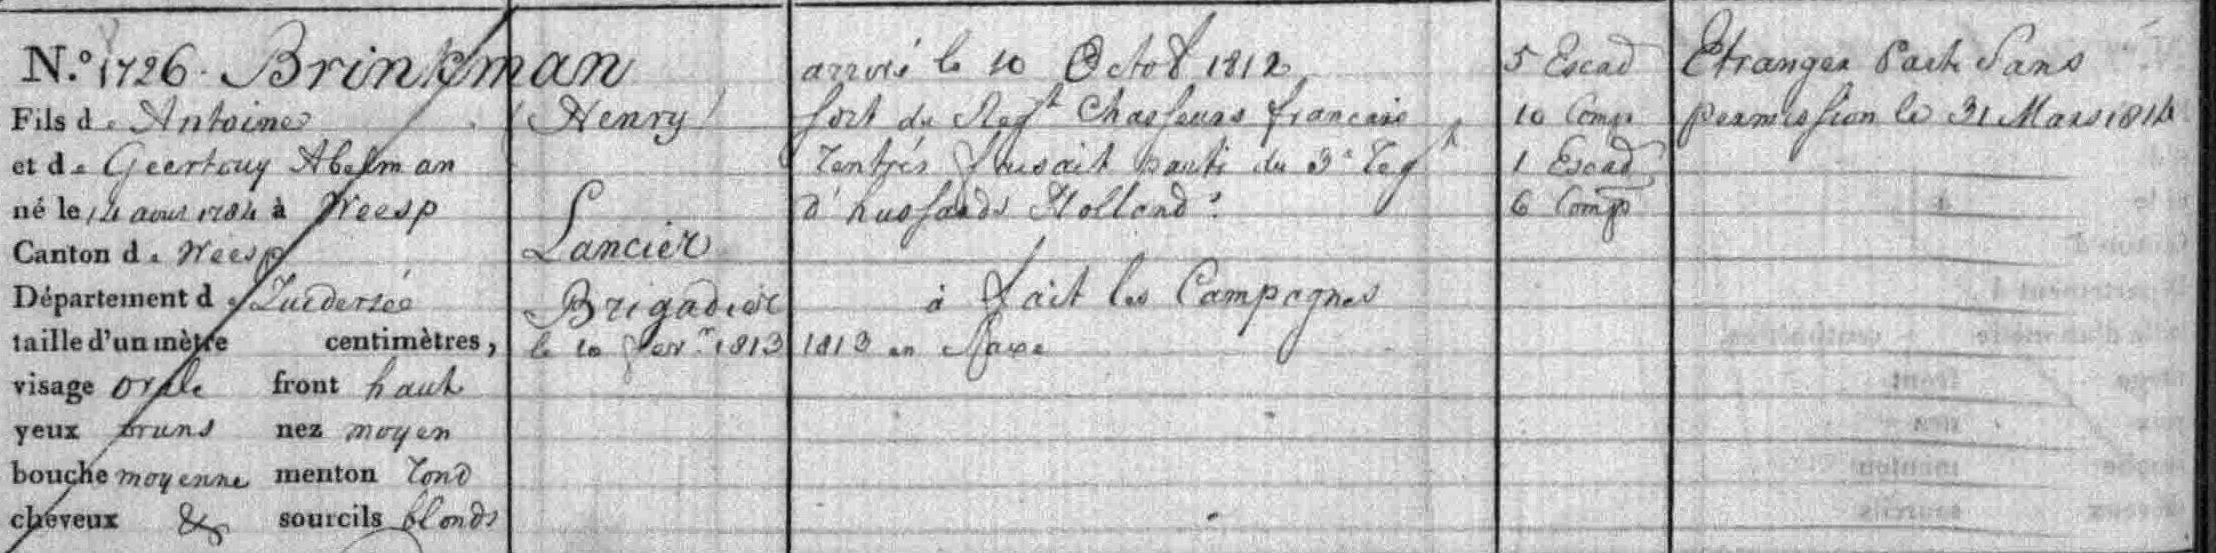 N.o 1726. Brinkman
Fils de Antoine
et de Geertruy Abelman
né le 14 aout 1784 à Weesp
Canton de Weesp
Département de Zuiderzée
taille d'un mètre centimètres,
visage ovale front haut
yeux bruns nez moyen
bouche moyenne menton rond
cheveux & sourcils blonds
(Henry)
Lancier
Brigadier
le 10 1813
arrivé le 10 Octob 1812
sort du Regt Chasseurs francais
rentrés faisait parti du 3e reg
d'hussards Holland:
à fait les Campagnes
1813 en Saxe
5 Escad
10 Comp
1 Escad
6 Comp
Etranger Parti Sans
permission le 31 Mars 1814